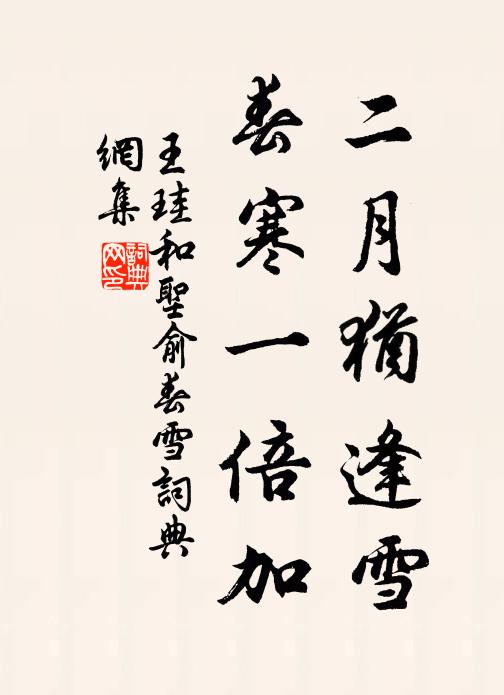 二月猶逢雪
春寒一倍加
王珪和聖俞春雪詞典
網集
詞典网印